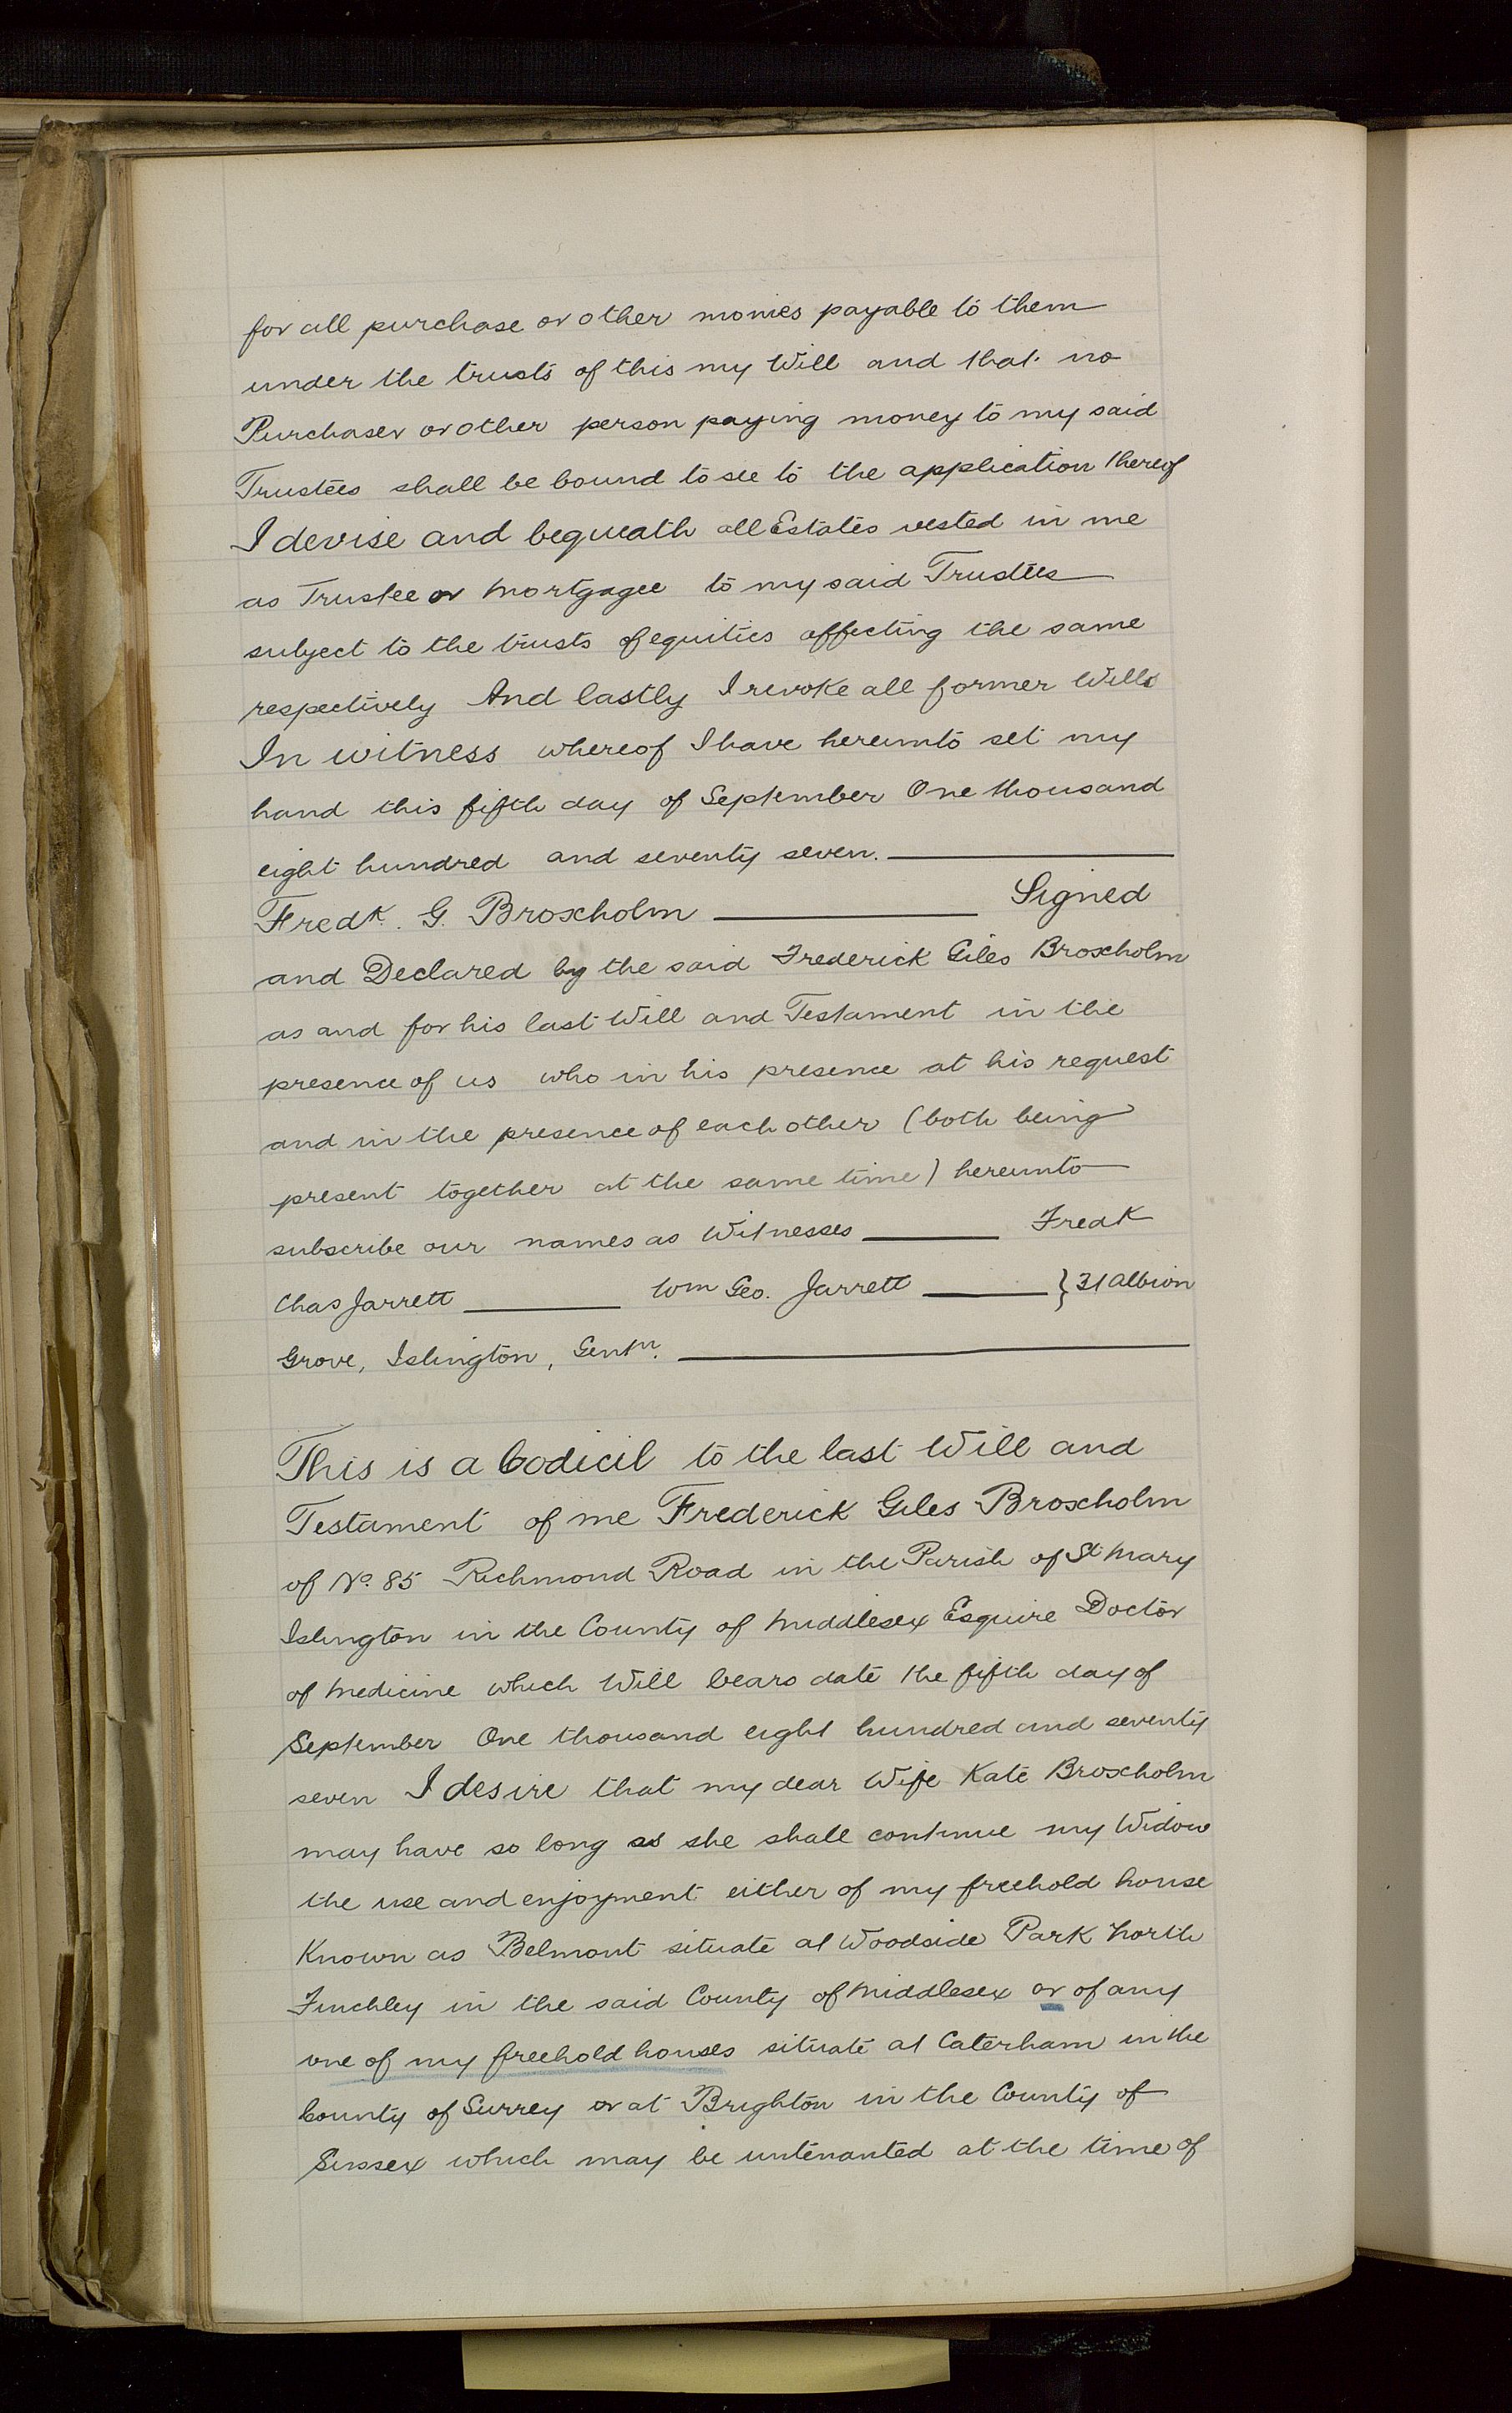 for all purchase or other monies payable to them
under the trusts of this my Will and that no
Purchaser or other person paying money to my said
Trustees shall be bound to see to the application thereof
I devise and bequeath all Estates vested in me
as Trustee or Mortgagee to my said Trustees
subject to the trusts of equities affecting the same
respectively And lastly I revoke all former Wills
In witness whereof I have hereunto set my
hand this fifth day of September One thousand
eight hundred and seventy seven.
Fredk. G. Broxholm Signed
and Declared by the said Frederick Giles Broxholm
as and for his last Will and Testament in the
presence of us who in his presence at his request
and in the presence of each other (both being
present together at the same time) hereunto
subscribe our names as Witnesses Fredk
Chas Jarrett Wm Geo. Jarrett } 31 Albion
Grove, Islington, Gentn.
This is a Codicil to the last Will and
Testament of me Frederick Giles Broxholm
of No. 85 Richmond Road in the Parish of St Mary
Islington in the County of Middlesex Esquire Doctor
of Medicine which Will bears date the fifth day of
September One thousand eight hundred and seventy
seven I desire that my dear Wife Kate Broxholm
may have so long as she shall continue my Widow
the use and enjoyment either of my freehold house
Known as Belmont situate at Woodside Park North
Finchley in the said County of Middlesex or of any
one of my freehold houses situate at Caterham in the
County of Surrey or at Brighton in the County of
Sussex which may be untenanted at the time of